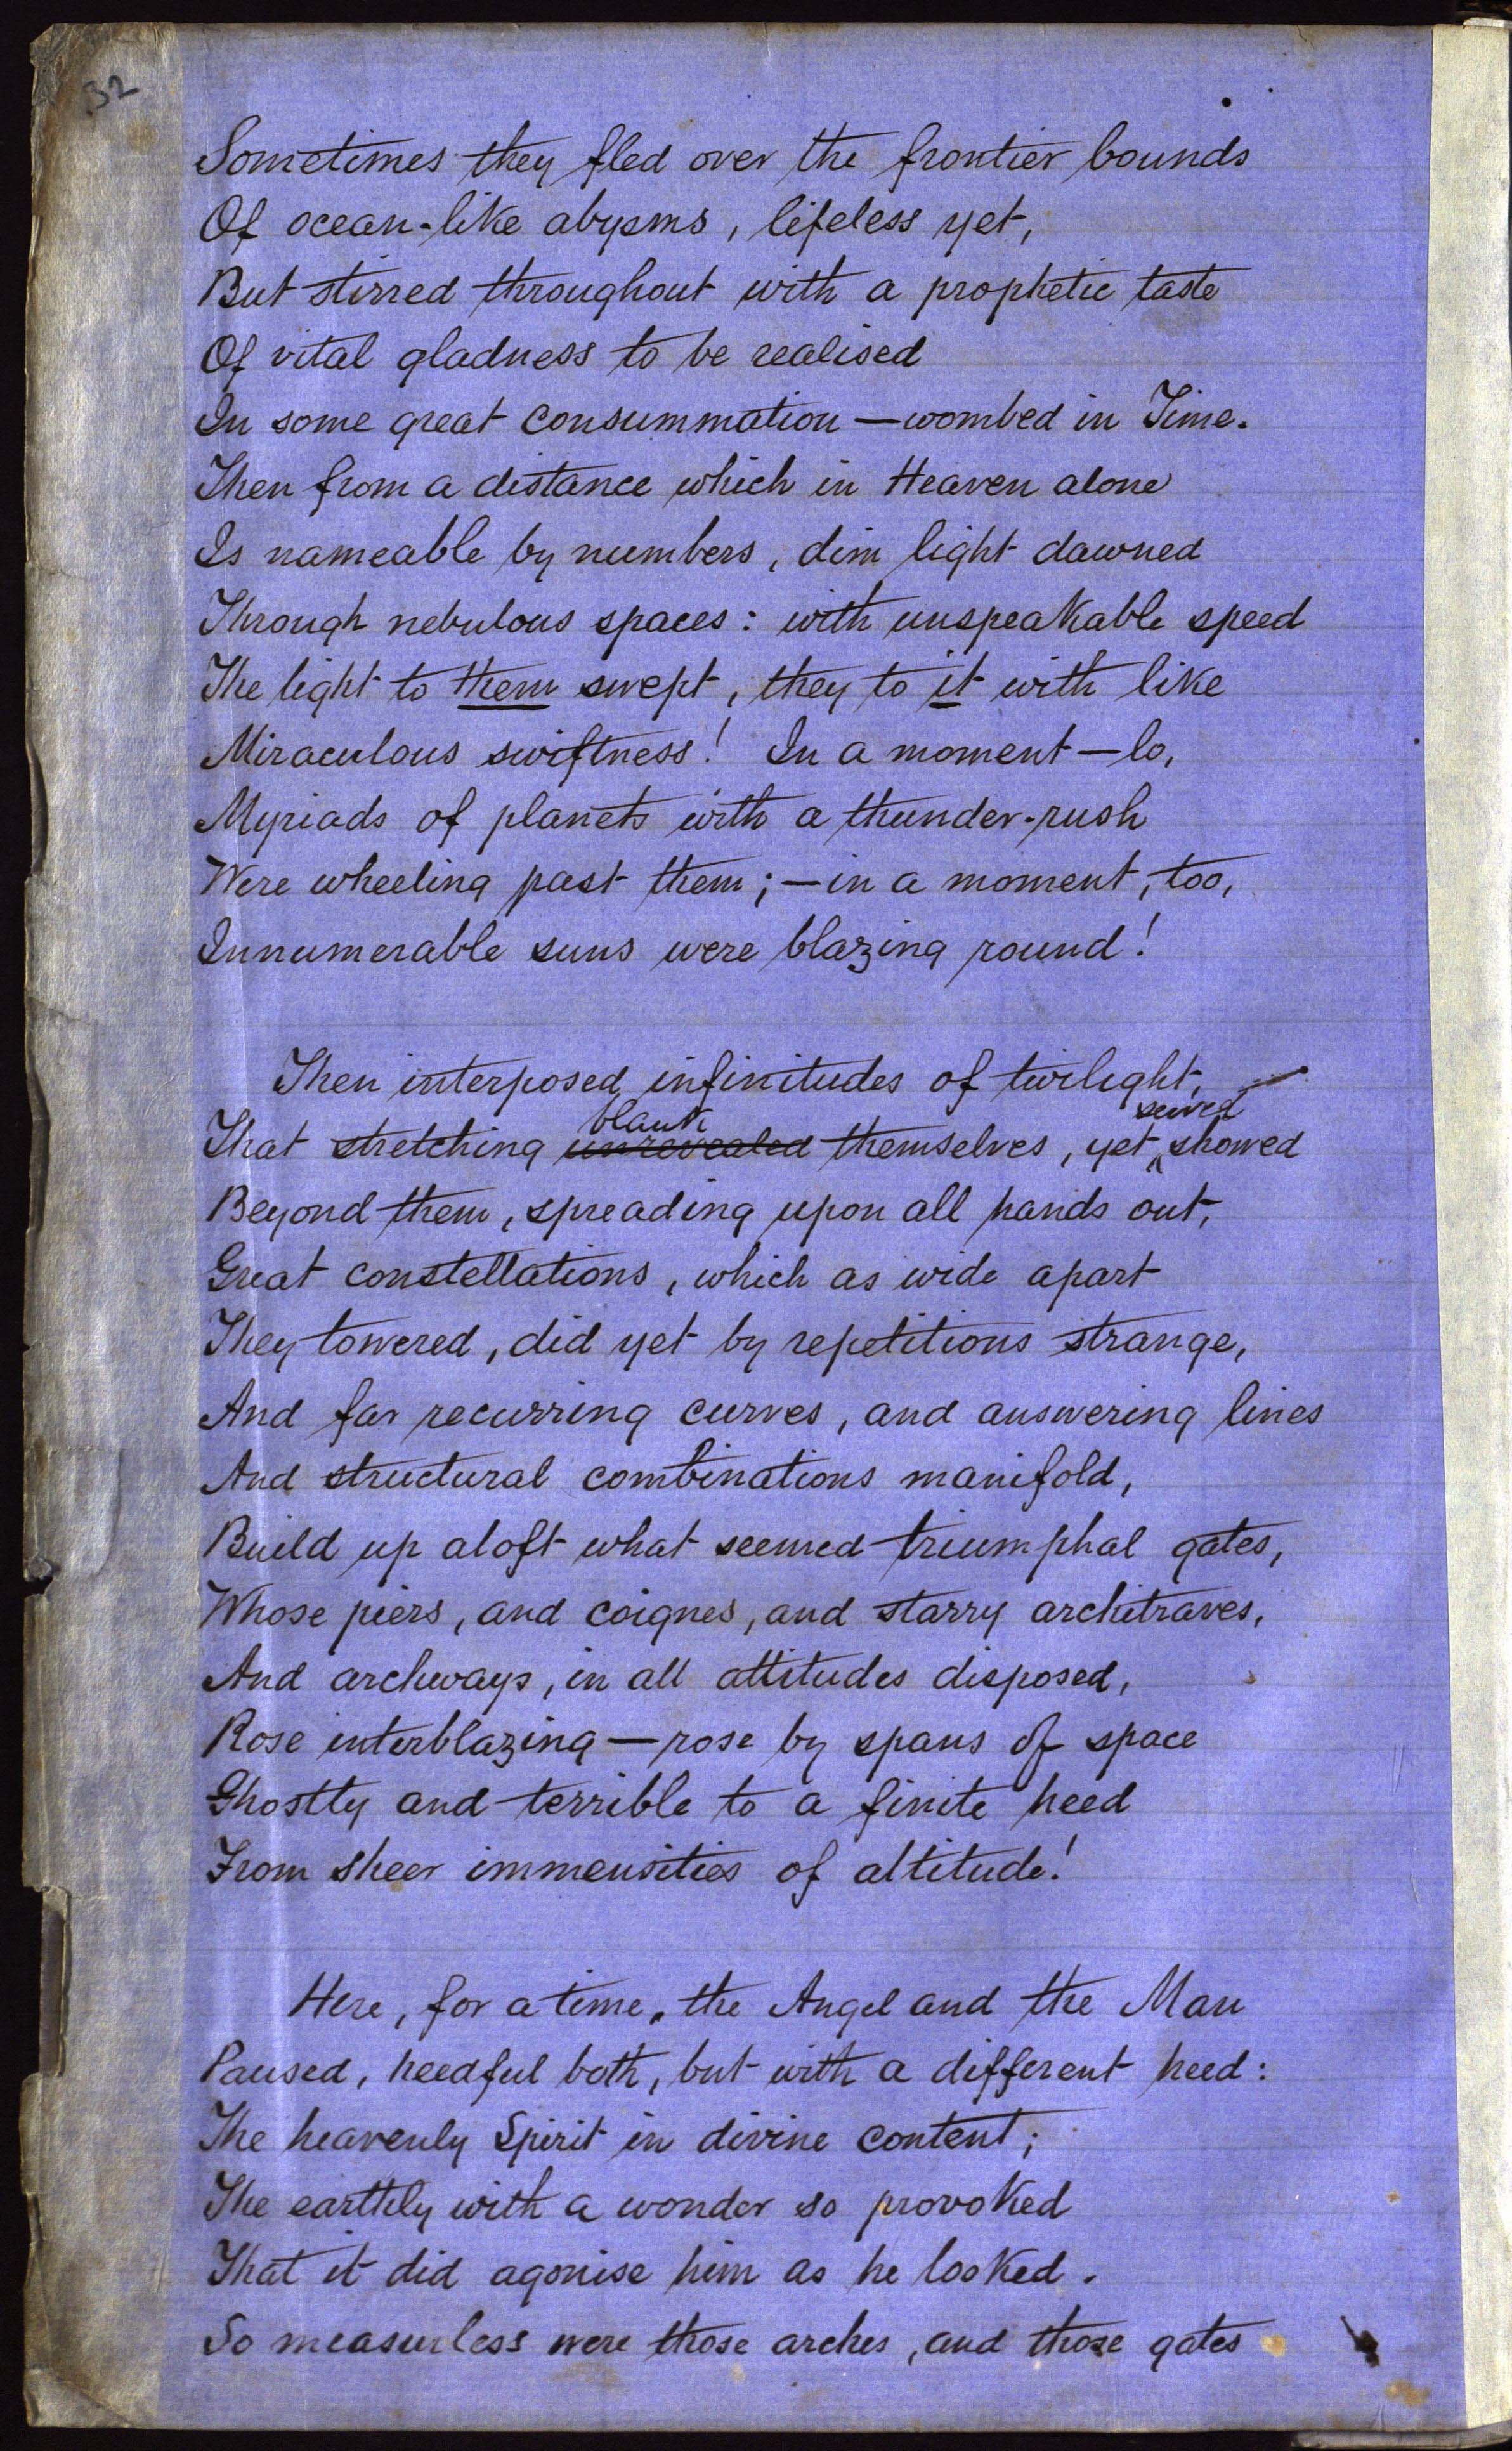 32
Sometimes they fled over the frontier bounds
Of ocean-like abysms, lifeless yet,
But stirred throughout with a prophetic taste
Of vital gladness to be realised
In some great consummation — wombed in Time.
Then from a distance which in Heaven alone
Is nameable by numbers, dim light dawned
Through nebulous spaces: with unspeakable speed
The light to them swept, they to it with like
Miraculous swiftness! In a moment — lo,
Myriads of planets with a thunder-rush
Were wheeling past them; — in a moment, too,
Innumerable suns were blazing round!
Then interposed infinitudes of twilight,
blank
That stretching unrevealed themselves, yet showed
Beyond them, spreading upon all hands out,
Great constellations, which as wide apart
They towered, did yet by repetitions strange,
And far recurring curves, and answering lines
And structural combinations manifold,
Build up aloft what seemed triumphal gates,
Whose piers, and coignes, and starry architraves,
And archways, in all attitudes disposed,
Rose interblazing — rose by spans of space
Ghostly and terrible to a finite heed
From sheer immensities of altitude!
Here, for a time, the Angel and the Man
Paused, heedful both, but with a different heed:
The heavenly Spirit in divine content;
The earthly with a wonder so provoked
That it did agonise him as he looked.
So measurless were those arches, and those gates